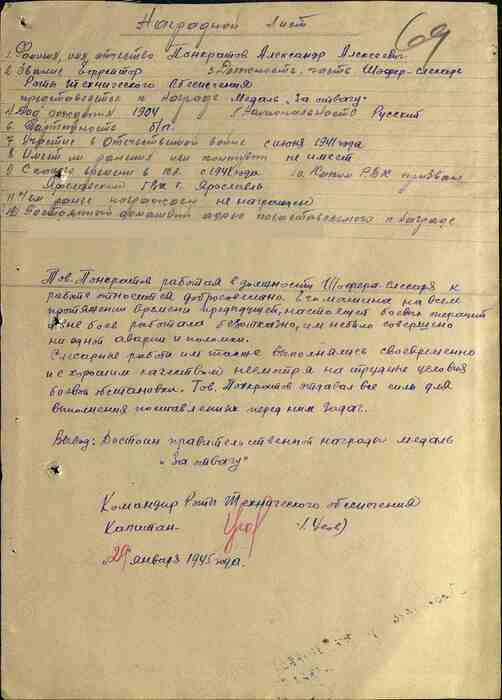 Наградной Лист
69
1. Фамилия, имя отчество Понкратов Александр Алексеевич
2. Звание Ефрейтор 3. Должность, часть Шофер-слесарь
Роты Технического Обеспечения
представляется к награде Медаль "За отвагу"
4. Год рождения 1904 5. Национальность Русский
6. Партийность б/п.
7. Участие в Отечественной войне с июня 1941 года
8. Имеет ли ранения или контузии не имеет
9. С какого времени в КА. с 1941 года 10. Каким РВК призван
Ярославский ГВК г. Ярославль
11. Чем ранее награжден не награжден
12. Постоянный домашний адрес представляемого к награде
Тов. Понкратов работая в должности Шофера-слесаря к
работе относится добросовестно. Его машина на всем
протяжении времени предыдущей, настоящей боевых операций
и вне боев работала безотказно, им не было совершено
ни одной аварии и поломки.
Слесарные работы им также выполнялись своевременно
и с хорошим качеством несмотря на трудные условия
боевой обстановки. Тов. Понкратов отдавал все силы для
выполнения поставленных перед ним задач.
Вывод: Достоин правительственной награды медаль
"За отвагу"
Командир Роты Технического обеспечения
Капитан
"29" января 1945 года.